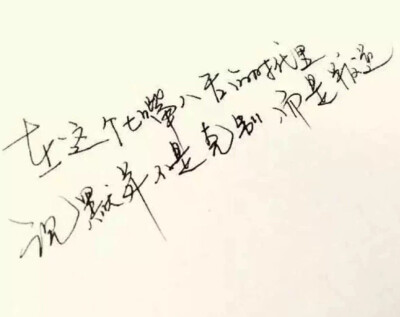 在这个七嘴八舌的时代里
沉默并不是克制 而是